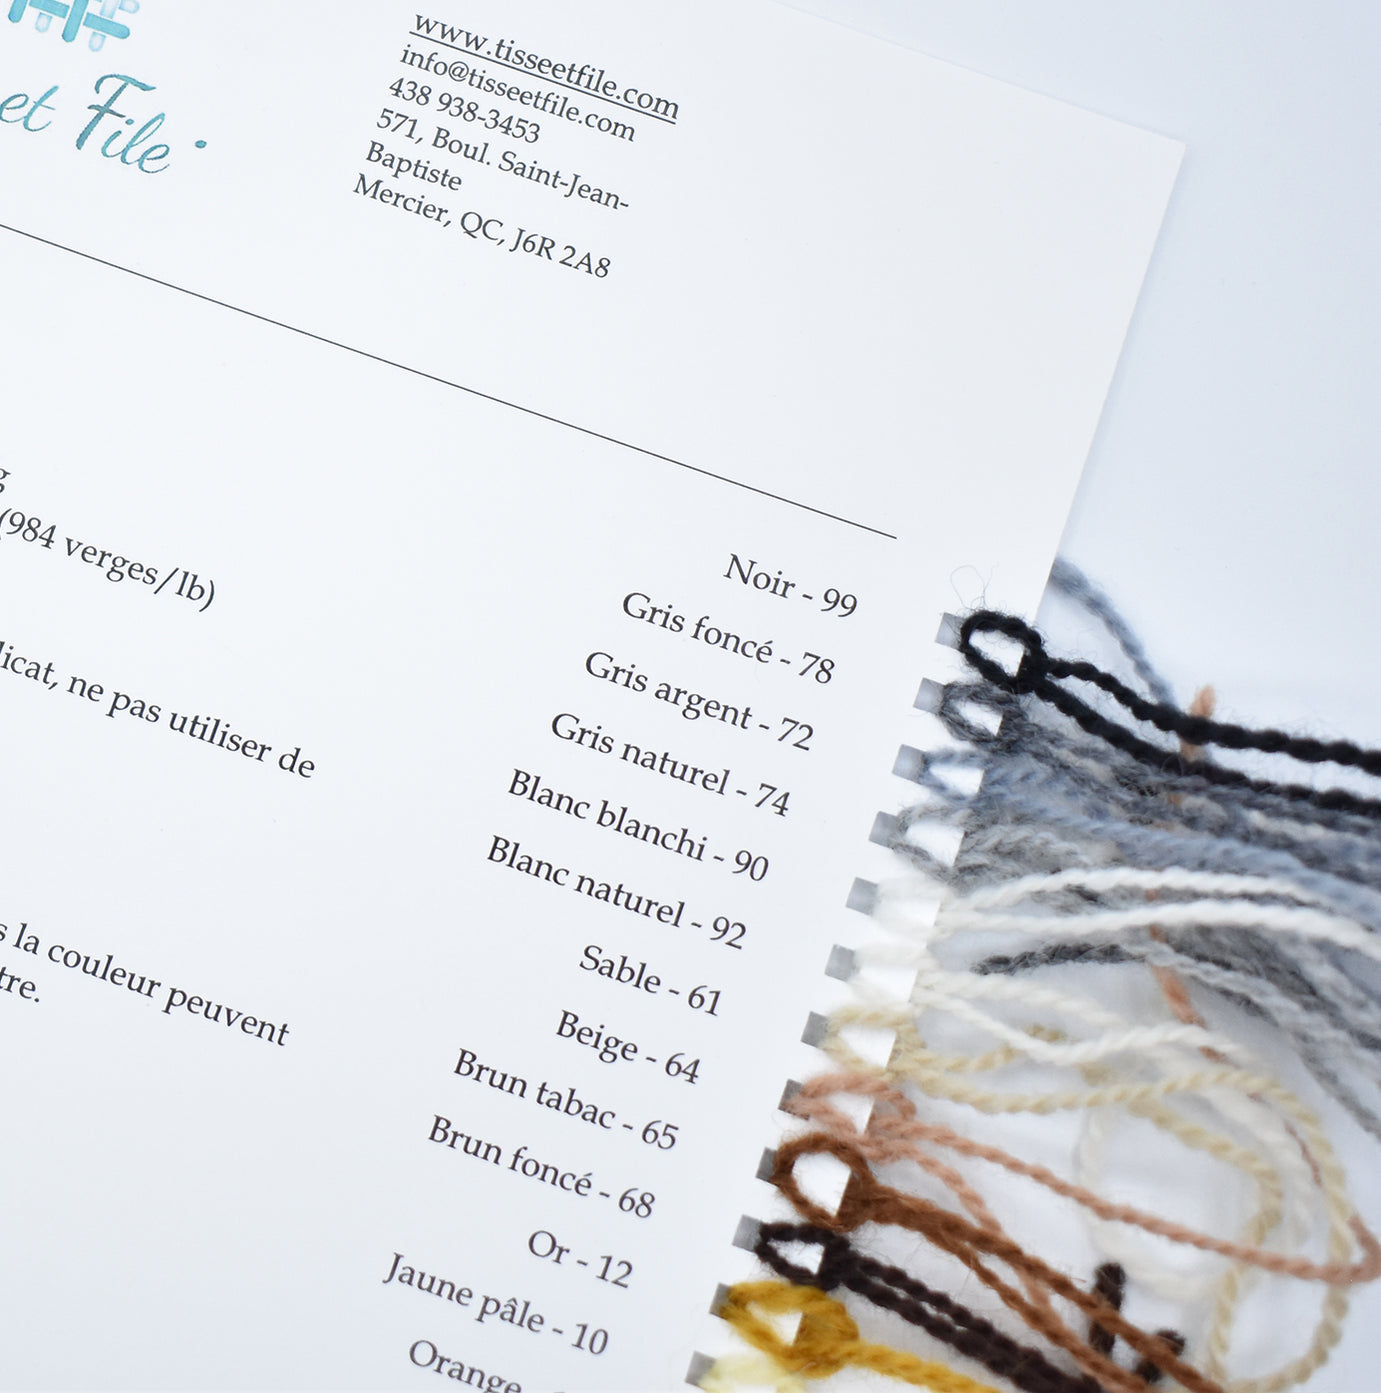 et File
www.tisseetfile.com
info@tisseetfile.com
438 938-3453
571, Boul. Saint-Jean-
Baptiste
Mercier, QC, J6R 2A8
(984 verges/lb)
ne pas utiliser de
la couleur peuvent
Noir - 99
Gris foncé - 78
Gris argent - 72
Gris naturel - 74
Blanc blanchi - 90
Blanc naturel - 92
Sable - 61
Beige - 64
Brun tabac - 65
Brun foncé - 68
Or - 12
Jaune pâle - 10
Orange